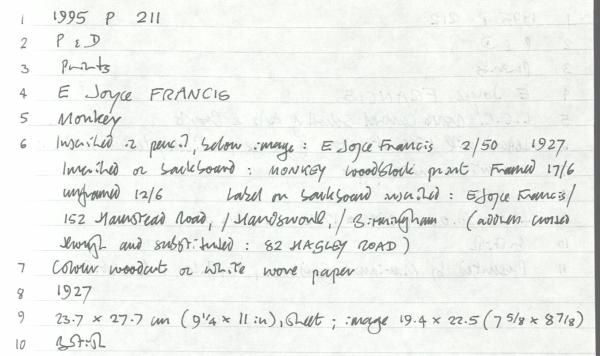 1 1995 P 211
2 P & D
3 Prints
4 E Joyce FRANCIS
5 Monkey
6 Inscribed in pencil, below image: E Joyce Francis 2/50 1927
Inscribed on backboard: MONKEY woodblock print Framed 17/6
unframed 12/6 Label on backboard inscribed: E Joyce Francis/
152 Hamstead Road, / Handsworth, / Birmingham (address crossed
through and substituted: 82 HAGLEY ROAD)
7 Colour woodcut on white wove paper
8 1927
9 23.7 x 27.7 cm (9 1/4 x 11 in), sheet; image 19.4 x 22.5 (7 5/8 x 8 7/8)
10 British